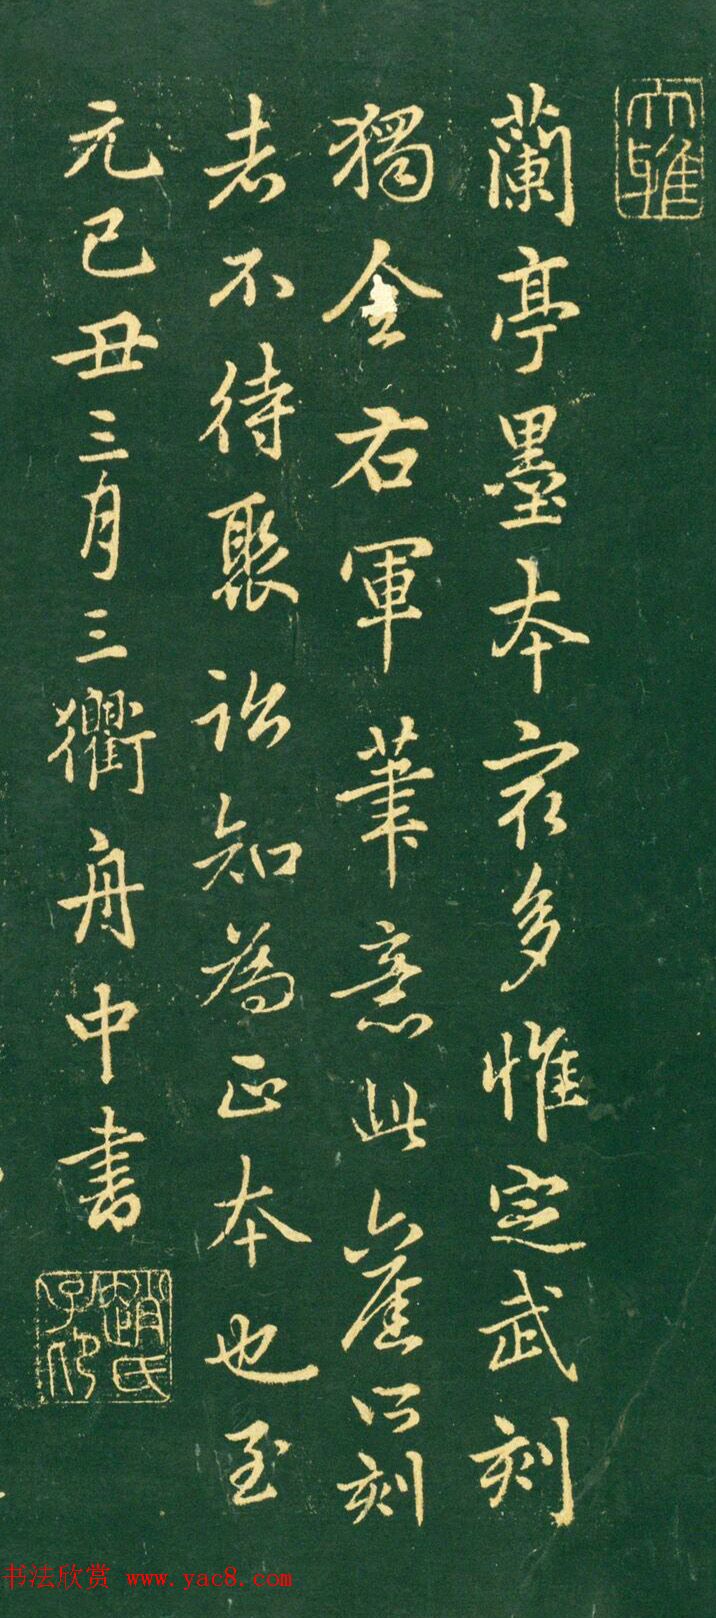 大雅
蘭亭墨本最多惟定武刻
獨全右軍筆意此六舊所刻
者不待聚訟知為正本也至
元己丑三月三衢舟中書
趙氏子昂
书法欣赏 www.yac8.com